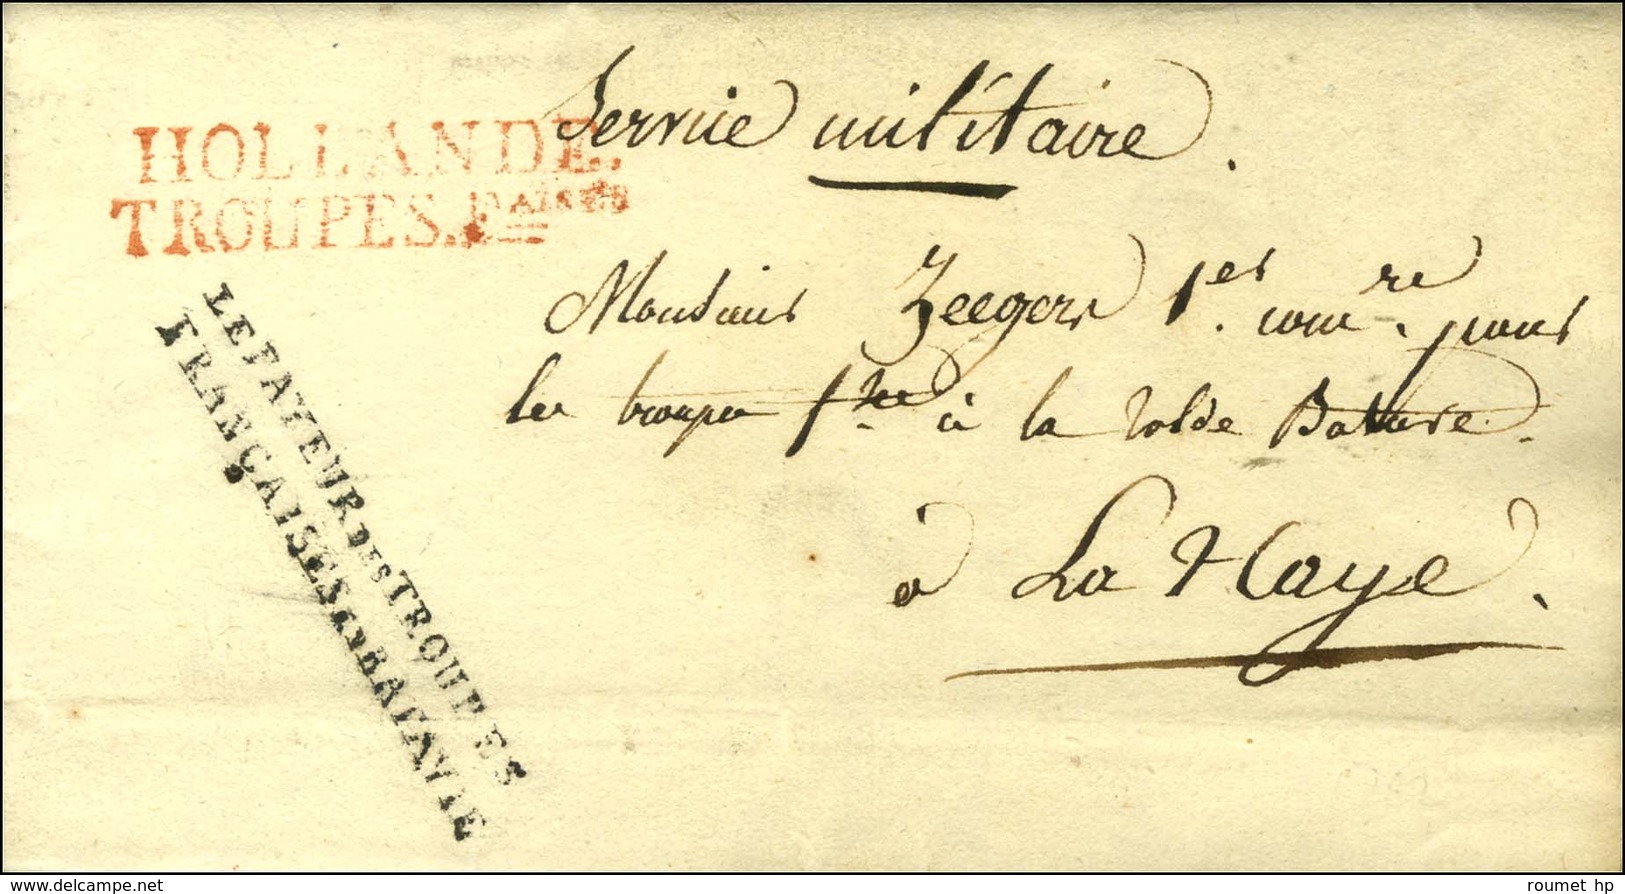 Service militaire.
HOLLANDE.
TROUPES.Fçaises
LE PAYEUR DES TROUPES
FRANÇAISES EN BATAVIE
Monsieur Zeegers 1.er com.re pour
les troupes f.ses à la solde Batave.
à La Haye.
delcampe.net
roumet hp